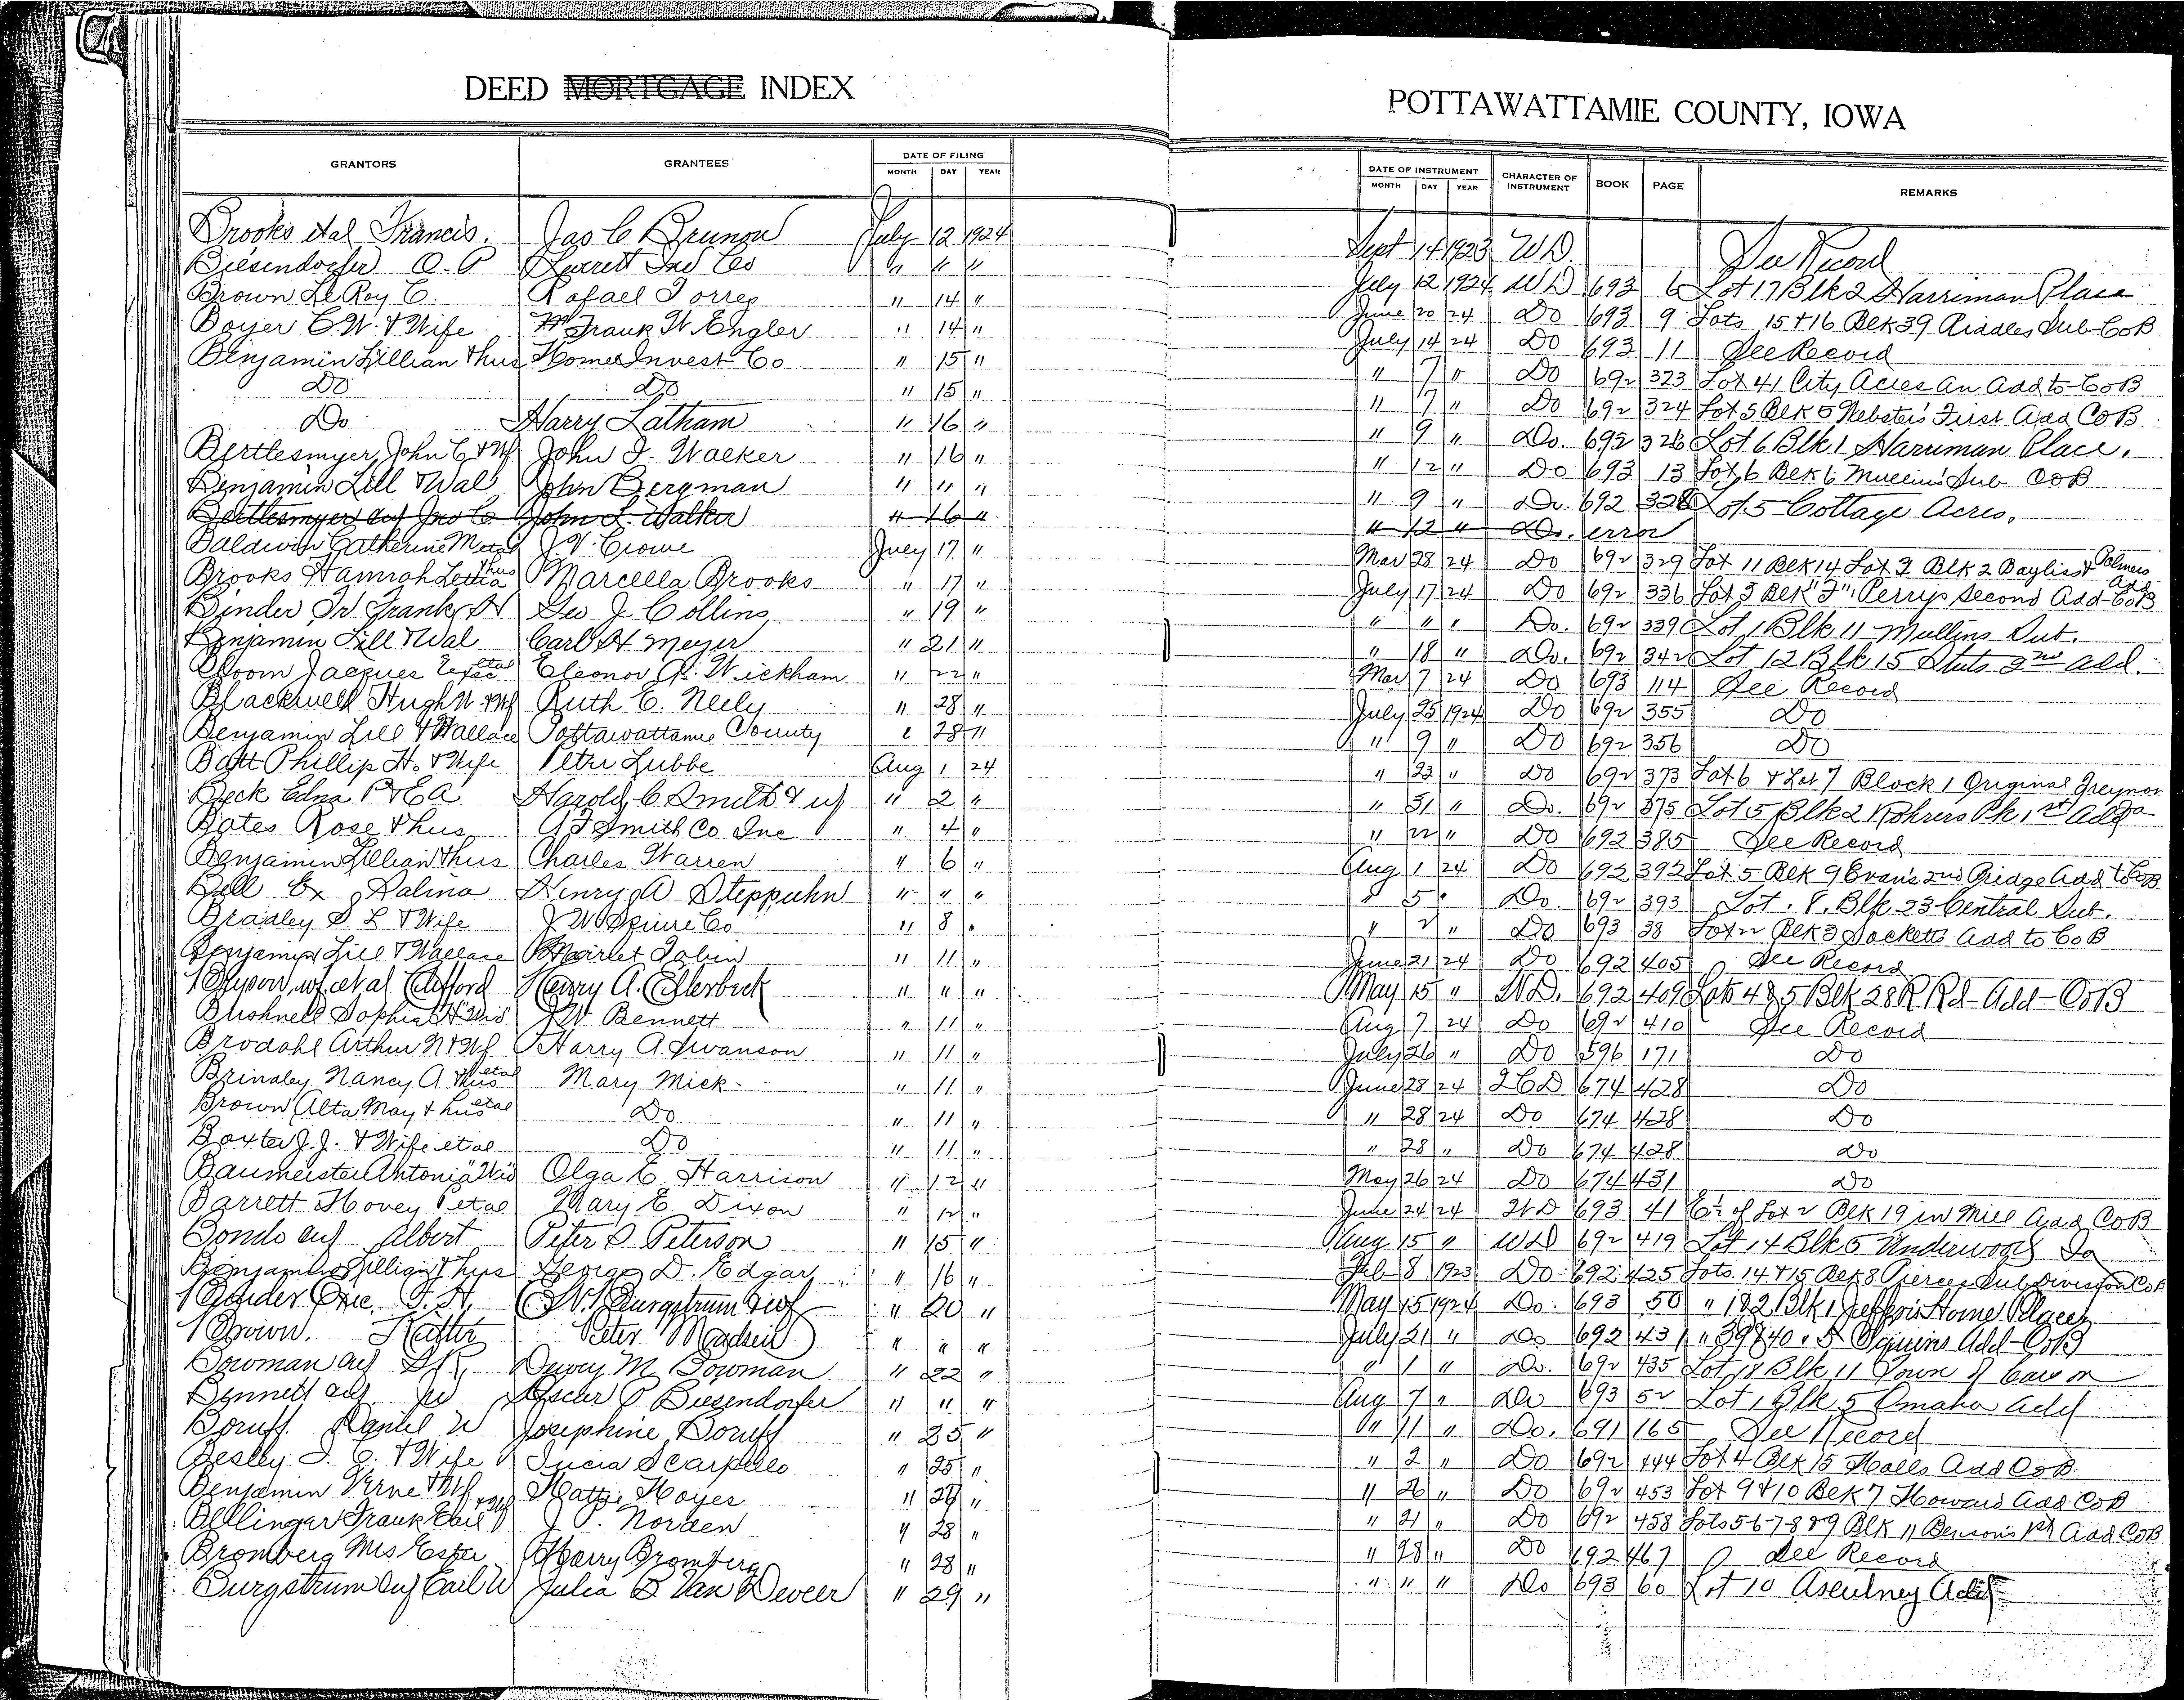 DEED MORTGAGE INDEX
POTTAWATTAMIE COUNTY, IOWA
GRANTORS GRANTEES DATE OF FILING MONTH DAY YEAR DATE OF INSTRUMENT MONTH DAY YEAR CHARACTER OF INSTRUMENT BOOK PAGE REMARKS
Brooks et al Francis. Jas C Brunow July 12 1924 Sept 14 1923 WD. See Record
Biesendorfer O. P Everett Inv Co " " " July 12 1924 WD 693 6 Lot 17 Blk 2 Harriman Place
Brown LeRoy C. Rafael Torres " 14 " June 20 24 Do 693 9 Lots 15 + 16 Blk 39 Riddles Sub CoB
Boyer C. W. + Wife Frank W Engler " 14 " July 14 24 Do 693 11 See Record
Benjamin Lillian + hus Homes Invest Co " 15 " " 7 " Do 692 323 Lot 41 City Acres an Add to CoB
Do Do " 15 " " 7 " Do 692 324 Lot 5 Blk 5 Webster's First Add CoB
Do Harry Latham " 16 " " 9 " Do. 692 326 Lot 6 Blk 1 Harriman Place.
Bertlesmyer, John C + Wf John I. Walker " 16 " " 12 " Do 693 13 Lot 6 Blk 6 Mullins' Sub CoB
Benjamin Lill + Wal John Bergman " " " " 9 " Do. 692 328 Lot 5 Cottage Acres.
Bertlesmyer auf Jno C John L. Walker " 16 " " 12 " Do. error
Baldwin Catherine M et al J. V. Crowe July 17 " Mar 28 24 Do 692 329 Lot 11 Blk 14 Lot 3 Blk 2 Bayliss + Palmers Add
Brooks Hannah Letha + hus Marcella Brooks " 17 " July 17 24 Do 692 336 Lot 3 Blk "F" Perrys Second Add CoB
Binder Jr Frank H Geo J Collins " 19 " " " " Do. 692 339 Lot 1 Blk 11 Mullins Sub.
Benjamin Lill + Wal Carl H Meyer " 21 " " 18 " Do. 692 342 Lot 12 Blk 15 Stuts 2nd Add.
Bloom Jacques Exec et al Eleonor A. Wickham " 22 " May 7 24 Do 693 114 See Record
Blackwell Hugh W. + Wf Ruth E. Neely " 28 " July 25 1924 Do 692 355 Do
Benjamin Lill + Wallace Pottawattamie County " 28 " " 9 " Do 692 356 Do
Batt Phillip H. + Wife Peter Lubbe Aug 1 24 " 23 " Do 692 373 Lot 6 + Lot 7 Block 1 Original Greynor
Beck Edna P + E A Harold C Smith + wf " 2 " " 31 " Do. 692 375 Lot 5 Blk 2 Rohrers Pk 1st Add
Bates Rose + hus A T Smith Co Inc " 4 " " 22 " Do 692 385 See Record
Benjamin Lillian + hus Charles Warren " 6 " Aug 1 24 Do 692 392 Lot 5 Blk 9 Evan's 2nd Bridge Add to CoB
Bell Ex Salina Henry A Steppuhn " " " " 5 " Do. 692 393 Lot. 8. Blk 23 Central Sub.
Bradley S L + Wife J W Squire Co " 8 " " 2 " Do 693 38 Lot 2 Blk 3 Sacketts Add to CoB
Benjamin Lill + Wallace Tobin " 11 " June 21 24 Do 692 405 See Record
Bryson, wf. et al Clifford Henry A. Ellerbeck " " " May 15 " W.D. 692 409 Lots 4 & 5 Blk 28 R Rd- Add - CoB
Bushnell Sophia H "Wid" J W Bennett " 11 " Aug 7 24 Do 692 410 See Record
Brodahl Arthur N + Wf Harry A. Swanson " 11 " July 26 " Do 596 171 Do
Brindley Nancy A + hus et al Mary Mick " 11 " June 28 24 2CD 674 428 Do
Brown Alta May + hus et al Do " 11 " " 28 24 Do 674 428 Do
Boxter J. J. + Wife et al Do " 11 " " 28 " Do 674 428 Do
Baumeister Antonia "Wid" Olga E. Harrison " 12 " May 26 24 Do 674 431 Do
Barrett Hovey P et al Mary E. Dixon " 12 " June 24 24 WD 693 41 E½ of Lot 2 Blk 19 in Mill Add CoB
Bondo auf Albert Peter S Peterson " 15 " Aug 15 " WD 692 419 Lot 14 Blk 5 Underwood Ia
Benjamin Lillian + hus George D. Edgar " 16 " Feb 8 1923 Do 692 425 Lots. 14 + 15 Blk 8 Pierces Subdivision CoB
Binder Exe. F. H. Burgstrum & wf " 20 " May 15 1924 Do. 693 50 " 1 & 2 Blk 1 Jefferis Home Place
Brown. Peter Madsen " " " July 21 " Do 692 431 " 39 & 40 " 5 Squires Add CoB
Bowman auf S R, Dewey M Bowman " 22 " " 1 " Do. 692 435 Lot 18 Blk 11 Town of Carson
Bennett auf JW Oscar P Biesendorfer " " " Aug 7 " Do 693 52 Lot 1 Blk 5 Omaha Add
Boruff. Daniel W Josephine Boruff " 25 " " 11 " Do. 691 165 See Record
Besley I. C. + Wife Lucia Scarpello " 25 " " 2 " Do 692 444 Lot 4 Blk 15 Halls Add CoB
Benjamin Verne + Wf Hattie Hayes " 26 " " 26 " Do 692 453 Lot 9 + 10 Blk 7 Howard Add CoB
Bellinger Frank Earl + Wf J. P. Norden " 28 " " 21 " Do 692 458 Lots 5-6-7-8 & 9 Blk 11 Benson's 1st Add CoB
Bromberg Mrs Ester Harry Bromberg " 28 " " 28 " Do 692 467 See Record
Burgstrum auf Earl W Julia B Van Deveer " 29 " " " " Do 693 60 Lot 10 Ascutney Add